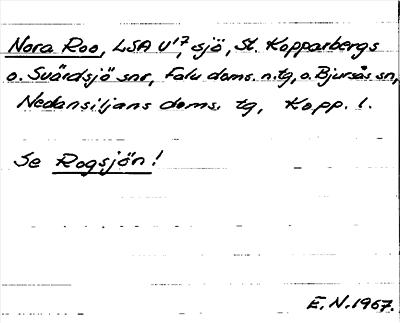 Nora Roo, LSA U¹⁷, sjö, St. Kopparbergs
o. Svärdsjö snr, Falu doms. n. tg, o. Bjursås sn,
Nedansiljans doms. tg, Kopp. l.
Se Rogsjön!
E. N. 1967.